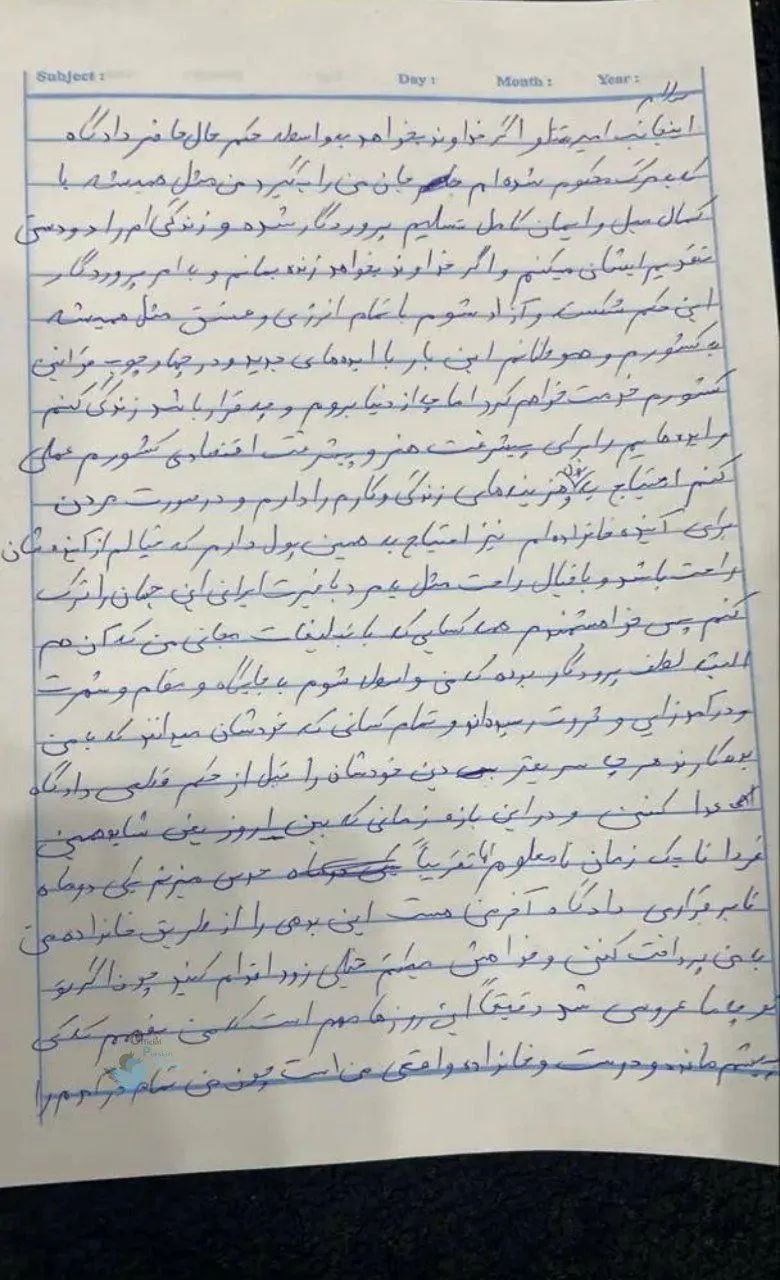 Subject : Day : Month : Year :
سلام
اینجانب امیر تتلو اگر خداوند بخواهد بواسطه حکم حال حاضر دادگاه
که به مرگ محکوم شده ام جان من را بگیرد من مثل همیشه با
کمال میل و ایمان کامل تسلیم پروردگار شده و زندگی ام را دو دستی
تقدیم ایشان میکنم و اگر خداوند بخواهد زنده بمانم و با امر پروردگار
این حکم شکست و آزاد شوم با تمام انرژی و عشق مثل همیشه
به کشورم و هموطنانم این بار با ایده های جدید و در چهارچوب قوانین
کشورم خدمت خواهم کرد اما چه از دنیا بروم و چه قرار باشد زندگی کنم
و ایده هایم را برای پیشرفت هنر و پیشرفت اقتصادی کشورم عملی
کنم احتیاج به پول و هزینه های زندگی و کارم را دارم و در صورت مردن
برای آینده خانواده ام نیز احتیاج به همین پول دارم که خیالم از آینده شان
راحت باشد و با خیال راحت مثل یه مرد با غیرت ایرانی این جهان را ترک
کنم پس خواهشمندم همه کسایی که با تبلیغات مجانی من که آن هم
البته لطف پروردگار بوده که من واسطه شوم به جایگاه و مقام و شهرت
و درآمدزایی و ثروت رسیداند و تمام کسانی که خودشان میدانند که به من
بدهکارند هر چه سریعتر دین خودشان را قبل از حکم قطعی دادگاه
ادا کنند و در این بازه زمانی که بین امروز یعنی شاید همین
فردا تا یک زمان نامعلوم اما تقریباً حدس میزنم یکی دو ماه
تا برقراری دادگاه آخر من هست این بدهی را از طریق خانواده من
به من پرداخت کنند و خواهش میکنم خیلی زود اقدام کنید چون اگر تو
تو چه ما عروسی شد دقیقاً این روزها مهم است که من بفهمم که کی
پیشم مانده و درست و خانواده واقعی من است چون من تمام درآمدم را
Official
Persian